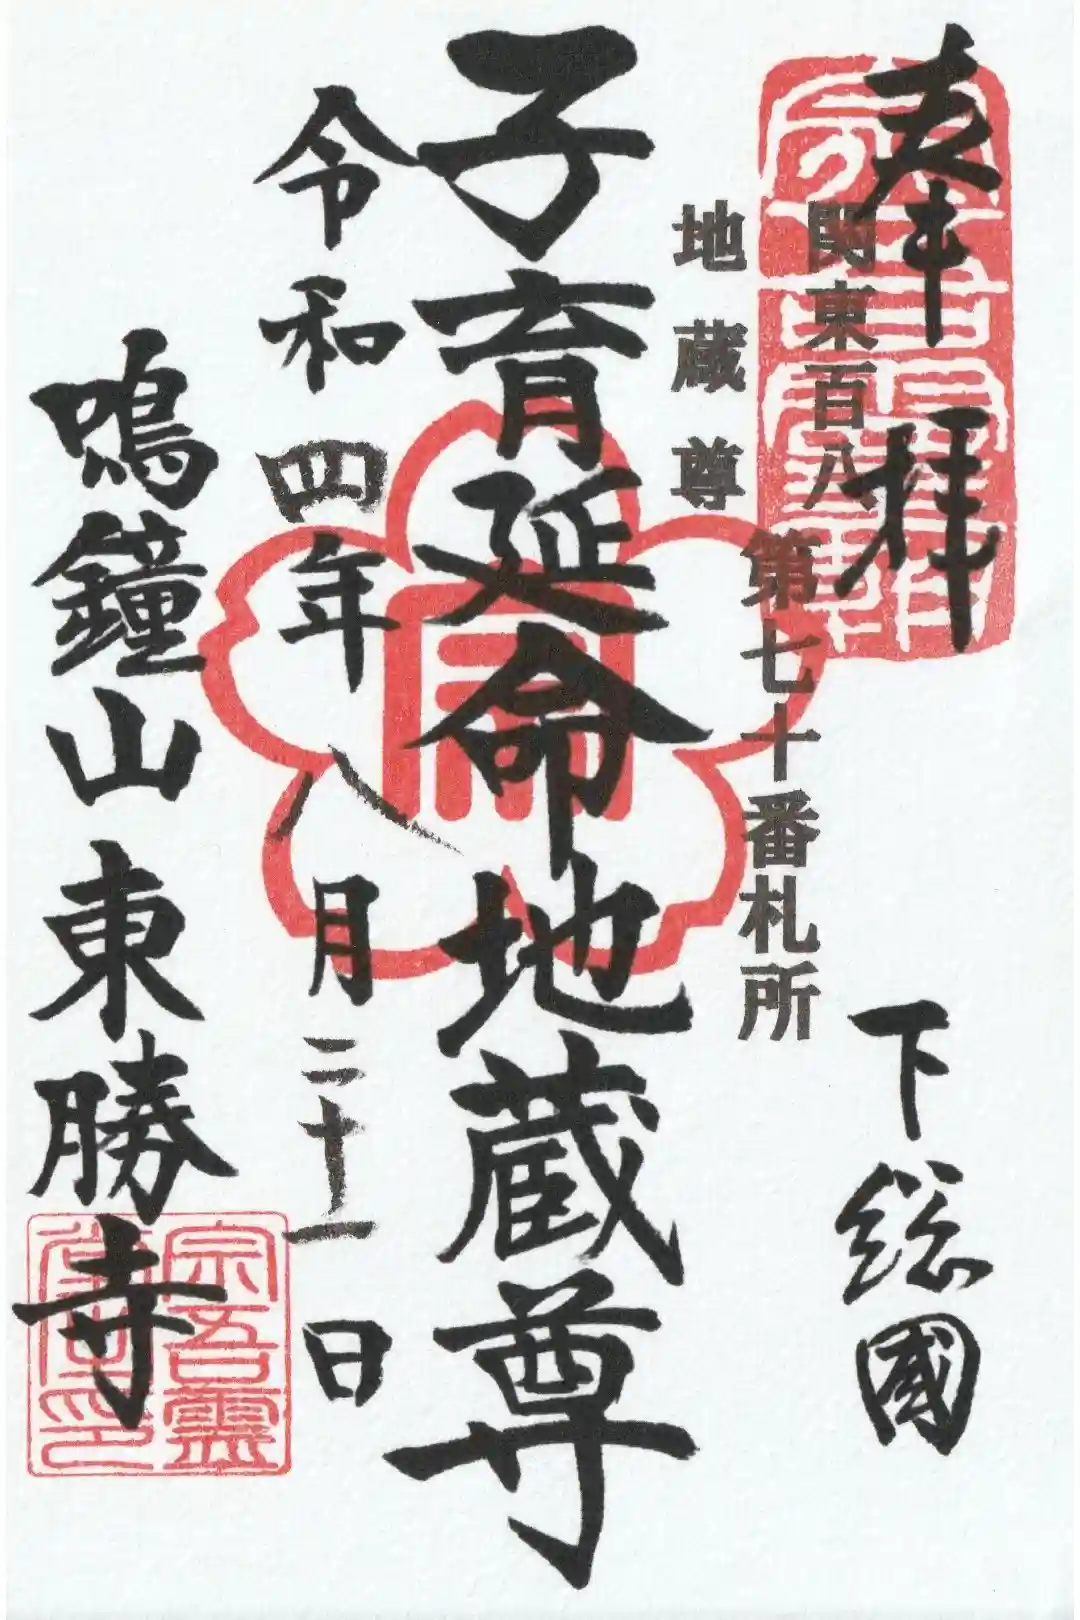 奉拝
下総國
関東百八
地蔵尊
第七十番札所
子育延命地蔵尊
令和四年八月二十一日
鳴鐘山東勝寺
宗吾霊